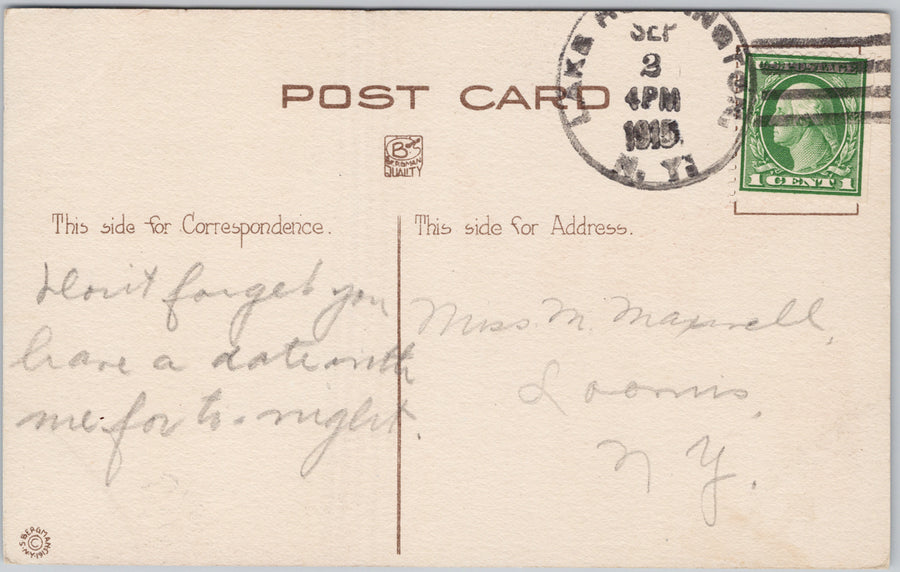 LAKE HUNTINGTON,
SEP
2
4PM
1915
N. Y.
U.S. POSTAGE
1 CENT 1
POST CARD
B
BERGMAN
QUALITY
This side for Correspondence.
This side for Address.
Don't forget you
have a date with
me for to-night.
Miss M. Maxwell,
Loomis,
N Y.
S. BERGMAN N.Y.
©